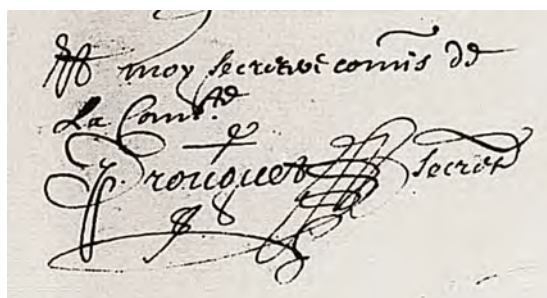 moy secretre comis de
La Com.té
Drouquet secret